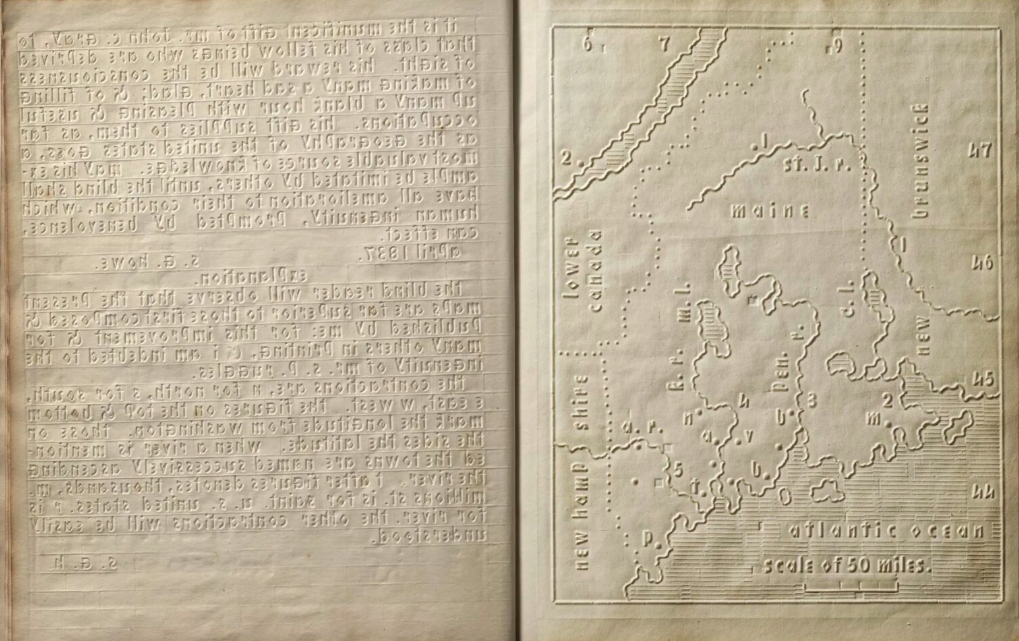 it is the munificent gift of mr. John c. Gray, to
that class of his fellow beings who are deprived
of sight. his reward will be the consciousness
of making many a sad heart, glad; & of filling
up many a blank hour with pleasing & useful
occupations. his gift supplies to them, as far
as the geography of the united states goes, a
most valuable source of knowledge. may his ex-
ample be imitated by others, until the blind shall
have all amelioration to their condition, which
human ingenuity, prompted by benevolence,
can effect.
april 1837. s. G. howe.
explanation.
the blind reader will observe that the present
maps are far superior to those first composed &
published by me: for this improvement & for
many others in printing, i am indebted to the
ingenuity of mr. s. p. ruggles.
the contractions are, n for north, s for south,
e east, w west. the figures on the top & bottom
mark the longitude from washington. those on
the sides the latitude. when a river is mention-
ed the towns are named successively ascending
the river. t after figures denotes, thousands, m.
millions st. is for saint. u. s. united states. r is
for river. the other contractions will be easily
understood.
s. G. h.
6
7
9
2
1
st. J. r.
47
brunswick
maine
lower
canada
1
46
m. l.
c. l.
new
k. r.
pen. r.
45
new hamp shire
a. r.
n
4
b
3
2
m
a
v
5
t
b
44
p.
atlantic ocean
scale of 50 miles.